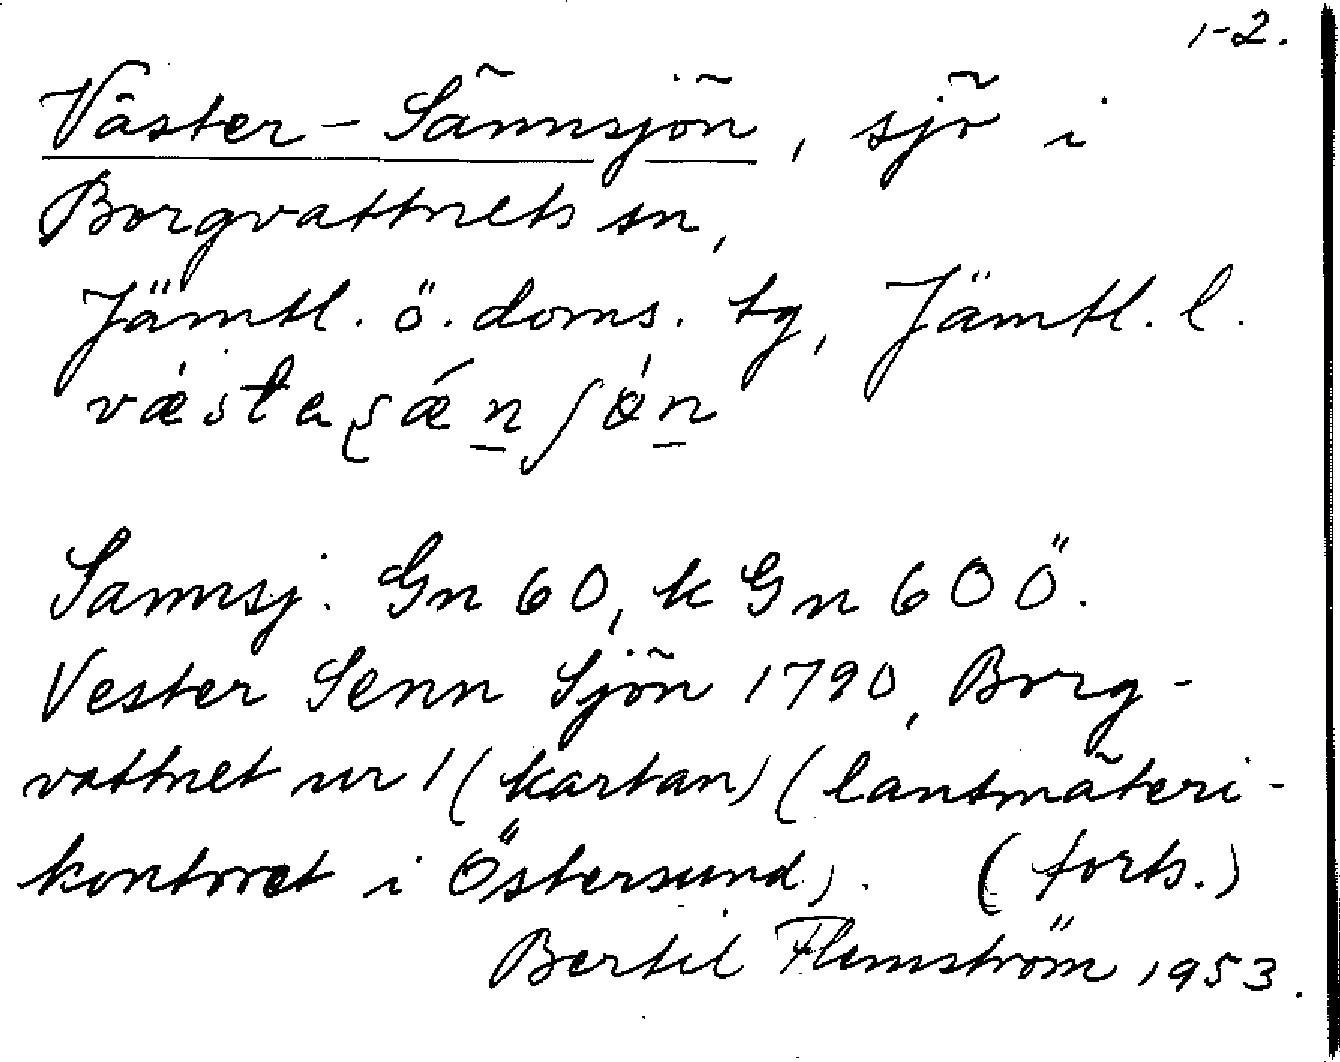 1-2.
Väster-Sännsjön, sjö i
Borgvattnets sn,
Jämtl. ö. doms. tg, Jämtl. l.
Sannsj. Gn 60, k Gn 60 Ö.
Vester Senn Sjön 1790, Borg-
vattnet nr 1 (kartan) (lantmäteri-
kontoret i Östersund). (forts.)
Bertil Flemström 1953.